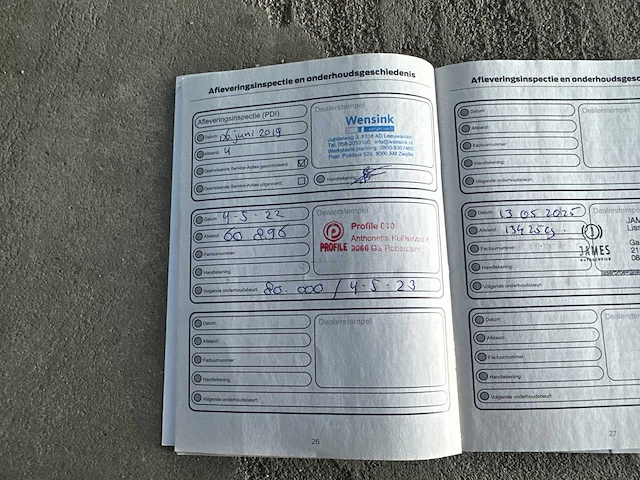 Afleveringsinspectie en onderhoudsgeschiedenis
Afleveringsinspectie (PDI)
Datum: 06 juni 2019
Afstand: 4
Openstaande Service-Acties gecontroleerd
Openstaande Service-Acties uitgevoerd
Dealerstempel
Wensink
Jupiterweg 2, 8938 AD Leeuwarden
Post: Postbus 529, 8000 AM Zwolle
Handtekening:
Datum: 4-5-22
Afstand: 60 896
Factuurnummer:
Handtekening:
Volgende onderhoudsbeurt: 80.000 / 4-5-23
Dealerstempel
PROFILE
Profile 010
3066 GS Rotterdam
Datum:
Afstand:
Factuurnummer:
Handtekening:
Volgende onderhoudsbeurt:
Dealerstempel
26
Afleveringsinspectie en onderhoudsgesc
Datum:
Afstand:
Factuurnummer:
Handtekening:
Volgende onderhoudsbeurt:
Dealerstempel
Datum: 13 05 2025
Afstand:
Factuurnummer:
Handtekening:
Volgende onderhoudsbeurt:
JAMES
AUTOSERVICE
JAM
Datum:
Afstand:
Factuurnummer:
Handtekening:
Volgende onderhoudsbeurt:
27